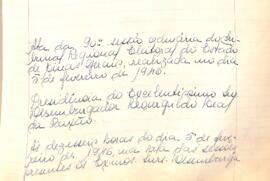 Ata da 90ª sessão ordinária do Tri-
bunal Regional Eleitoral do Estado
de Minas Gerais, realizada no dia
5 de fevereiro de 1946.
Presidência do Excelentíssimo Sr.
Desembargador Leovigildo Leal
da Paixão.
Às dezesseis horas do dia 5 de feve-
reiro de 1946, na sala das sessões,
presentes os Exmos. Snrs. Desembarga-